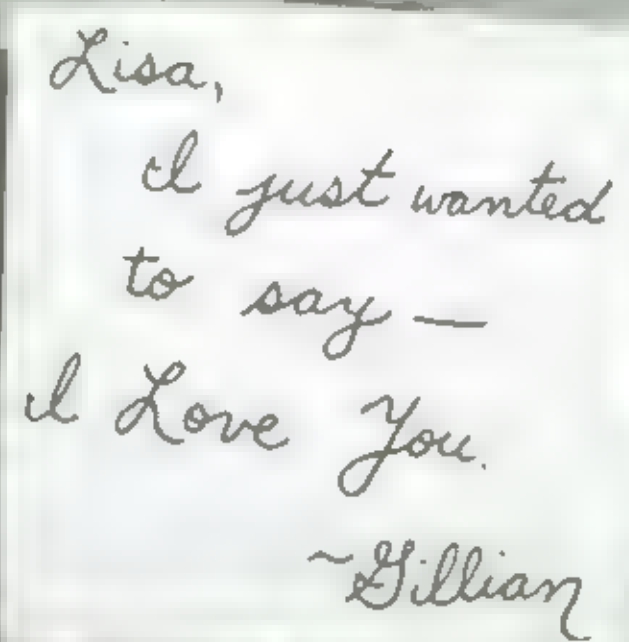 Lisa,
I just wanted
to say —
I Love You.
~Gillian